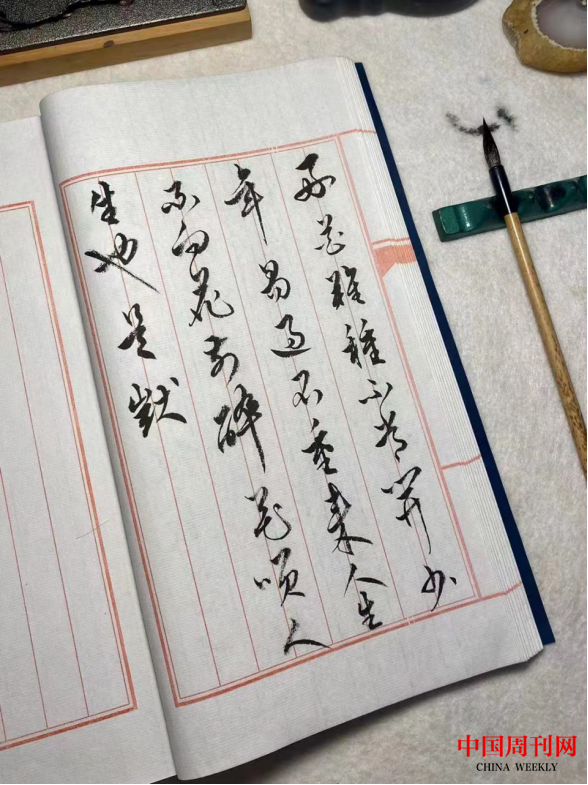 好花難種不長開少
年易過不重來人生
不向花前醉花咲人
生也是獃
中国周刊网
CHINA WEEKLY